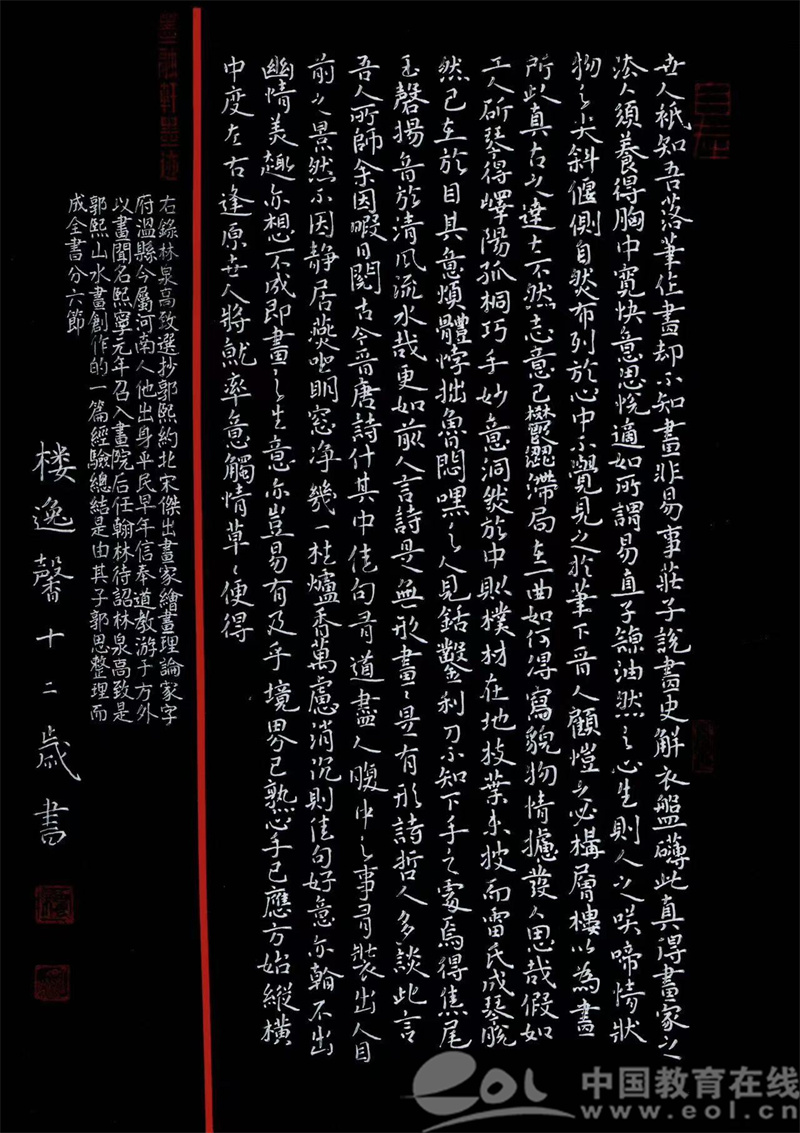 世人祇知吾落筆作畫却不知畫非易事莊子說畫史解衣盤礴此真得畫家之
法人須養得胸中寬快意思悅適如所謂易直子諒油然之心生則人之咲啼情狀
物之尖斜偃側自然布列於心中不覺見之於筆下晉人顧愷之必構層樓以為畫
所此真古之達士不然志意已鬱澀滯局在一曲如何得寫貌物情攄發人思哉假如
工人斫琴得嶧陽孤桐巧手妙意洞然於中則樸材在地枝葉未披而雷氏成琴曉
然已在於目其意煩體悖拙魯悶嘿々之人見銛鑿利刀不知下手之處焉得焦尾
玉磬揚音於清風流水哉更如前人言詩是無形畫々是有形詩哲人多談此言
吾人所師余因暇日閱古今晉唐詩什其中佳句有道盡人腹中之事有裝出人目
前之景然不因靜居燕坐明窓净幾一炷爐香萬慮消沉則佳句好意亦不出
幽情美趣亦想不成即畫之生意亦豈易有及乎境界已熟心手已應方始縱橫
中度左右逢原世人將就率意觸情草々便得
右錄林泉高致選抄郭熙約北宋傑出畫家繪畫理論家字
府溫縣今屬河南人他出身平民早年信奉道教游于方外
以畫聞名熙寧元年召入畫院后任翰林待詔林泉高致是
郭熙山水畫創作的一篇經驗總結是由其子郭思整理而
成全書分六節
楼逸馨十二歲書
eol 中国教育在线
www.eol.cn